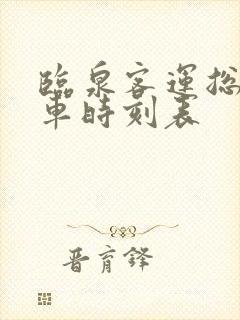 臨泉客運総
車時刻表
晋育鋒